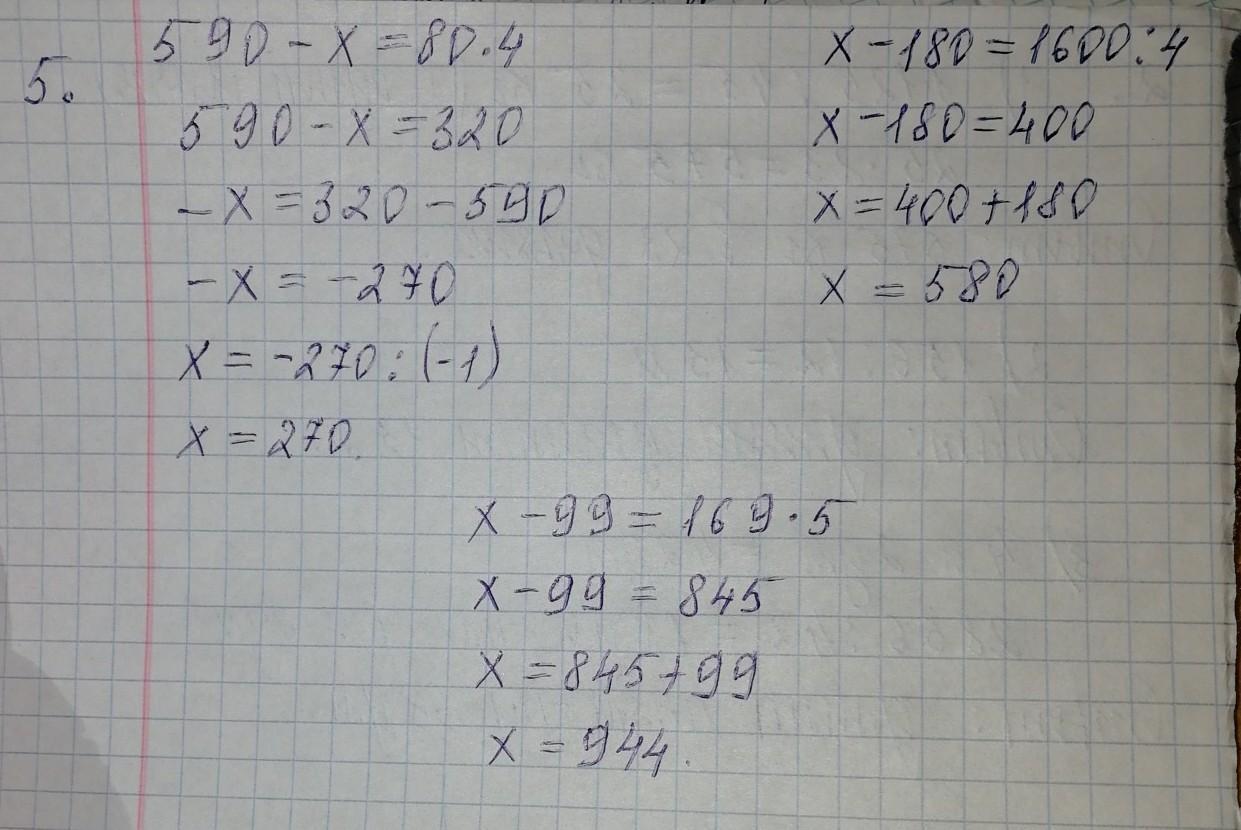 5.
590 - x = 80 · 4
590 - x = 320
- x = 320 - 590
- x = -270
x = -270 : (-1)
x = 270.
x - 180 = 1600 : 4
x - 180 = 400
x = 400 + 180
x = 580
x - 99 = 169 · 5
x - 99 = 845
x = 845 + 99
x = 944.